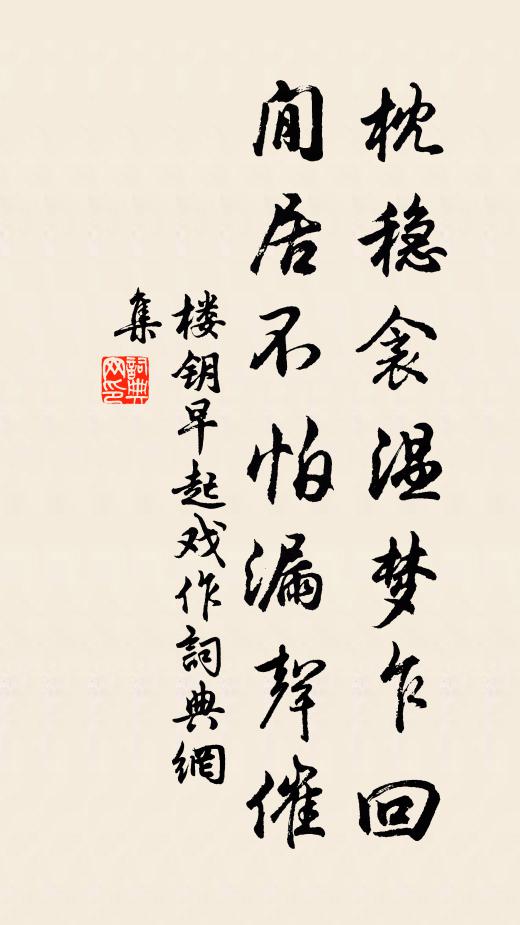 枕稳衾温梦乍回
閒居不怕漏聲催
楼钥早起戏作詞典網
集
詞典网印